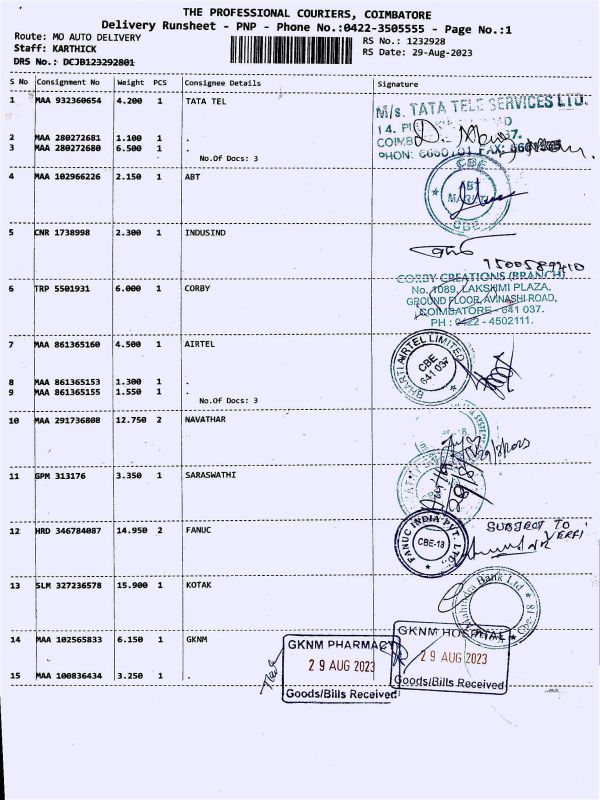 THE PROFESSIONAL COURIERS, COIMBATORE
Delivery Runsheet - PNP - Phone No.:0422-3505555 - Page No.:1
Route: MO AUTO DELIVERY
RS No.: 1232928
Staff: KARTHICK
RS Date: 29-Aug-2023
DRS No.: DCJB123292801
S No Consignment No Weight PCS Consignee Details Signature
1 MAA 932360654 4.200 1 TATA TEL
M/s. TATA TELE SERVICES LTD.
2 MAA 280272681 1.100 1 .
3 MAA 280272680 6.500 1 .
No.Of Docs: 3
4 MAA 102966226 2.150 1 ABT
CBE
ABT
CBE
5 CNR 1738998 2.300 1 INDUSIND
CORBY CREATIONS (BRANCH)
6 TRP 5501931 6.000 1 CORBY
No. 1089, LAKSHMI PLAZA,
GROUND FLOOR, AVINASHI ROAD,
COIMBATORE - 641 037.
PH : 0422 - 4502111.
7 MAA 861365160 4.500 1 AIRTEL
BHARTI AIRTEL LIMITED
CBE
641 037
8 MAA 861365153 1.300 1 .
9 MAA 861365155 1.550 1 .
No.Of Docs: 3
10 MAA 291736808 12.750 2 NAVATHAR
29/8/2023
11 GPM 313176 3.350 1 SARASWATHI
12 HRD 346784087 14.950 2 FANUC
FANUC INDIA PVT. LTD.,
CBE-18
SUBJECT TO
VERFI
13 SLM 327236578 15.900 1 KOTAK
Mahindra Bank Ltd
14 MAA 102565833 6.150 1 GKNM
GKNM PHARMACY
29 AUG 2023
Goods/Bills Received
GKNM HOSPITAL
29 AUG 2023
Goods/Bills Received
15 MAA 100836434 3.250 1 .